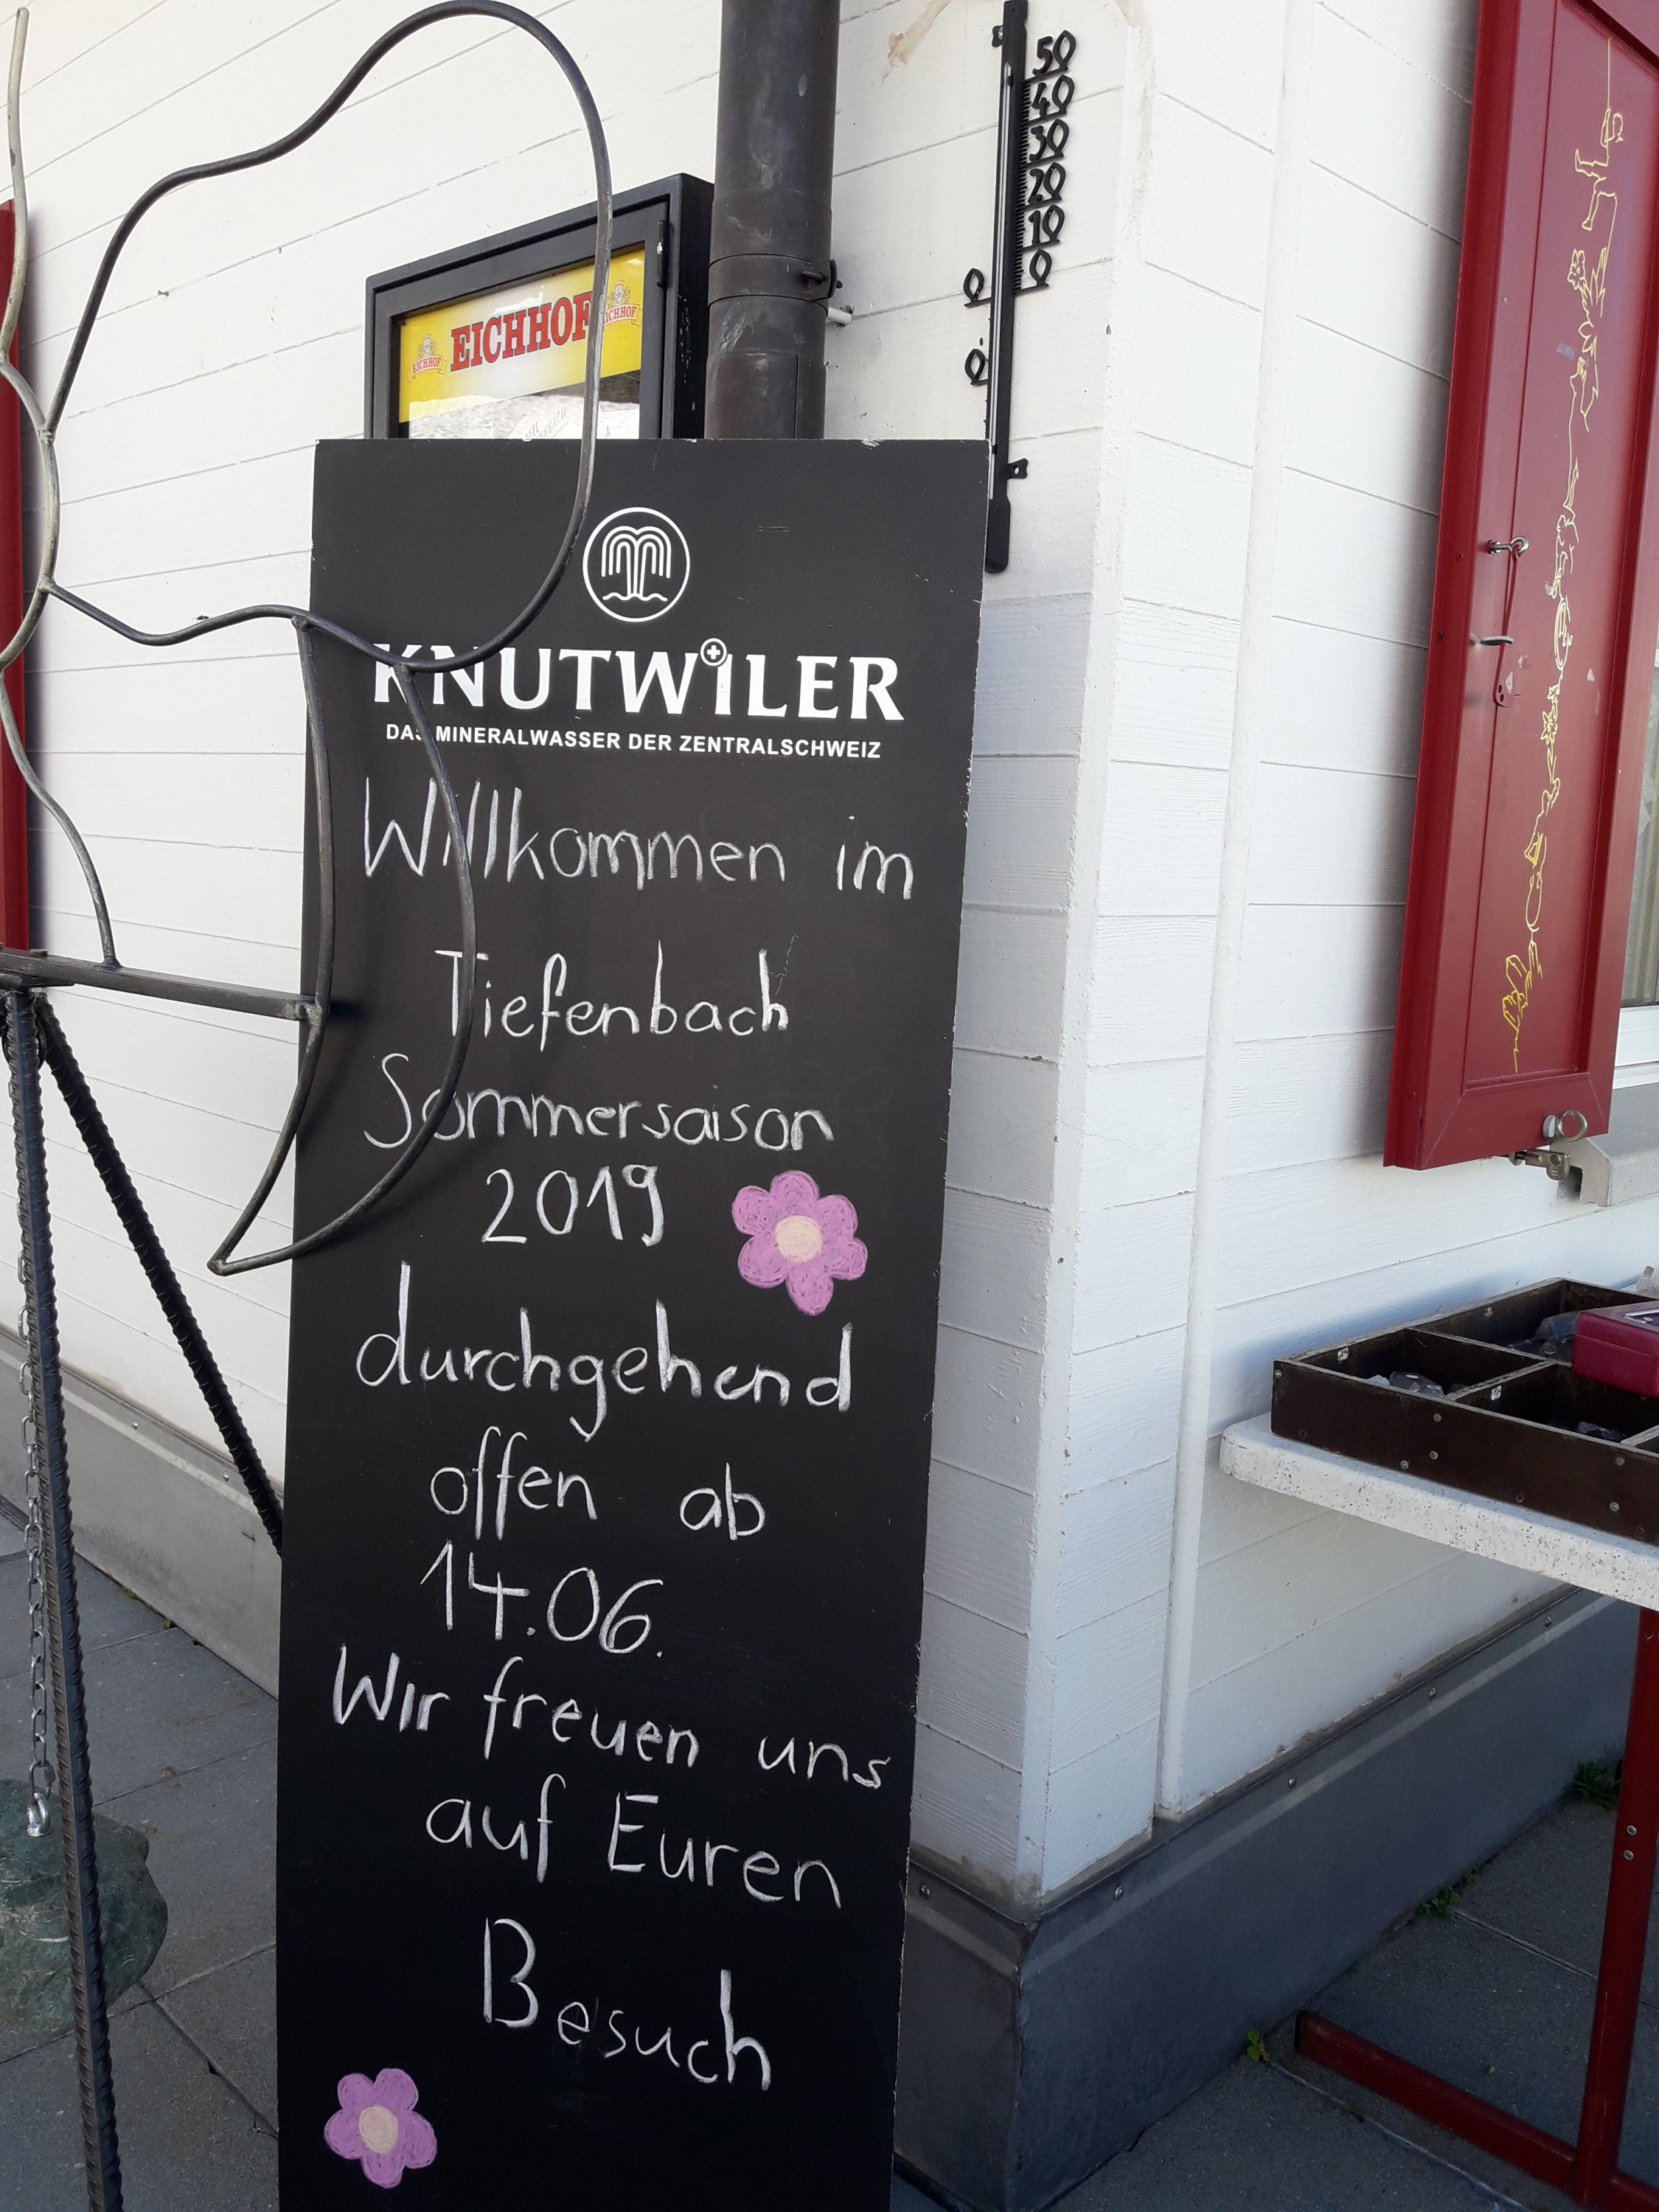 50
40
30
20
10
0
EICHHOF
EICHHOF
EICHHOF
KNUTWiLER
DAS MINERALWASSER DER ZENTRALSCHWEIZ
Willkommen im
Tiefenbach
Sommersaison
2019
durchgehend
offen ab
14.06.
Wir freuen uns
auf Euren
Besuch